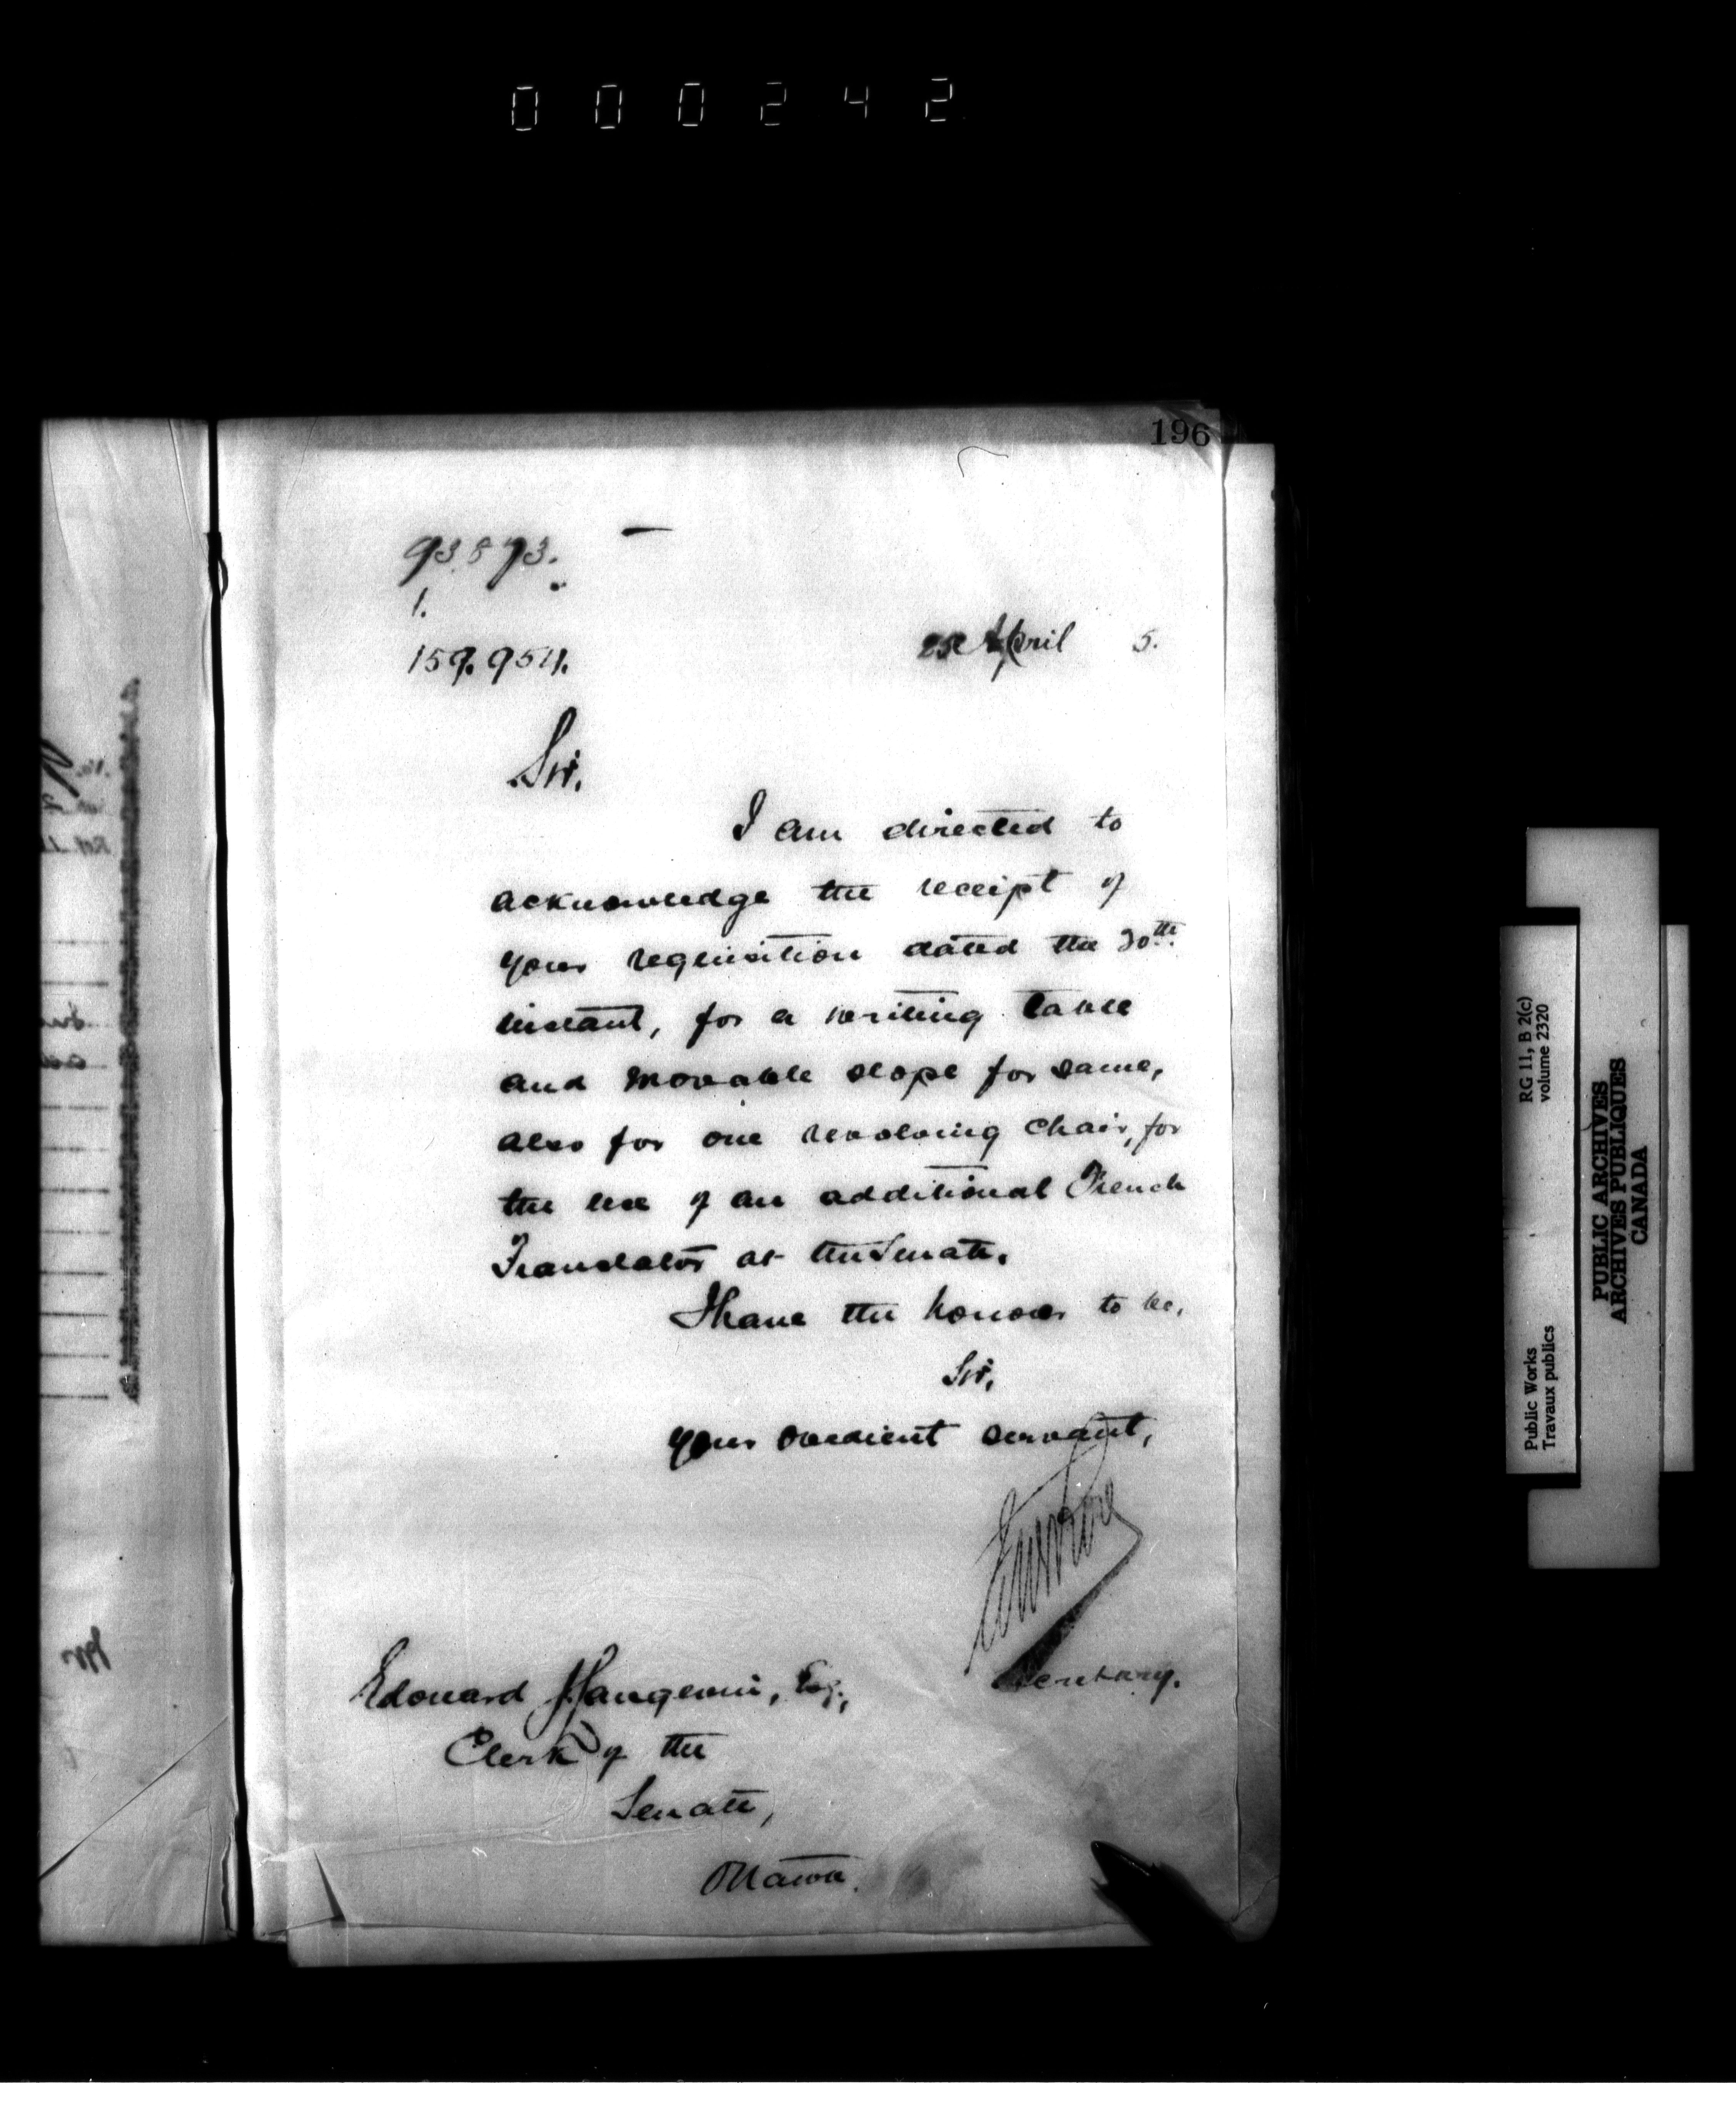 000242
196
93873.
1.
159.954.
25 April 5.
Sir,
I am directed to
acknowledge the receipt of
your requisition dated the 20th
instant, for a writing table
and movable slope for same,
also for one revolving chair, for
the use of an additional French
Translator at the Senate.
I have the honour to be,
Sir,
your obedient servant,
Secretary.
Edouard J. Langevin, Esq.,
Clerk of the
Senate,
Ottawa.
Public Works RG 11, B 2(c)
Travaux publics volume 2320
PUBLIC ARCHIVES
ARCHIVES PUBLIQUES
CANADA